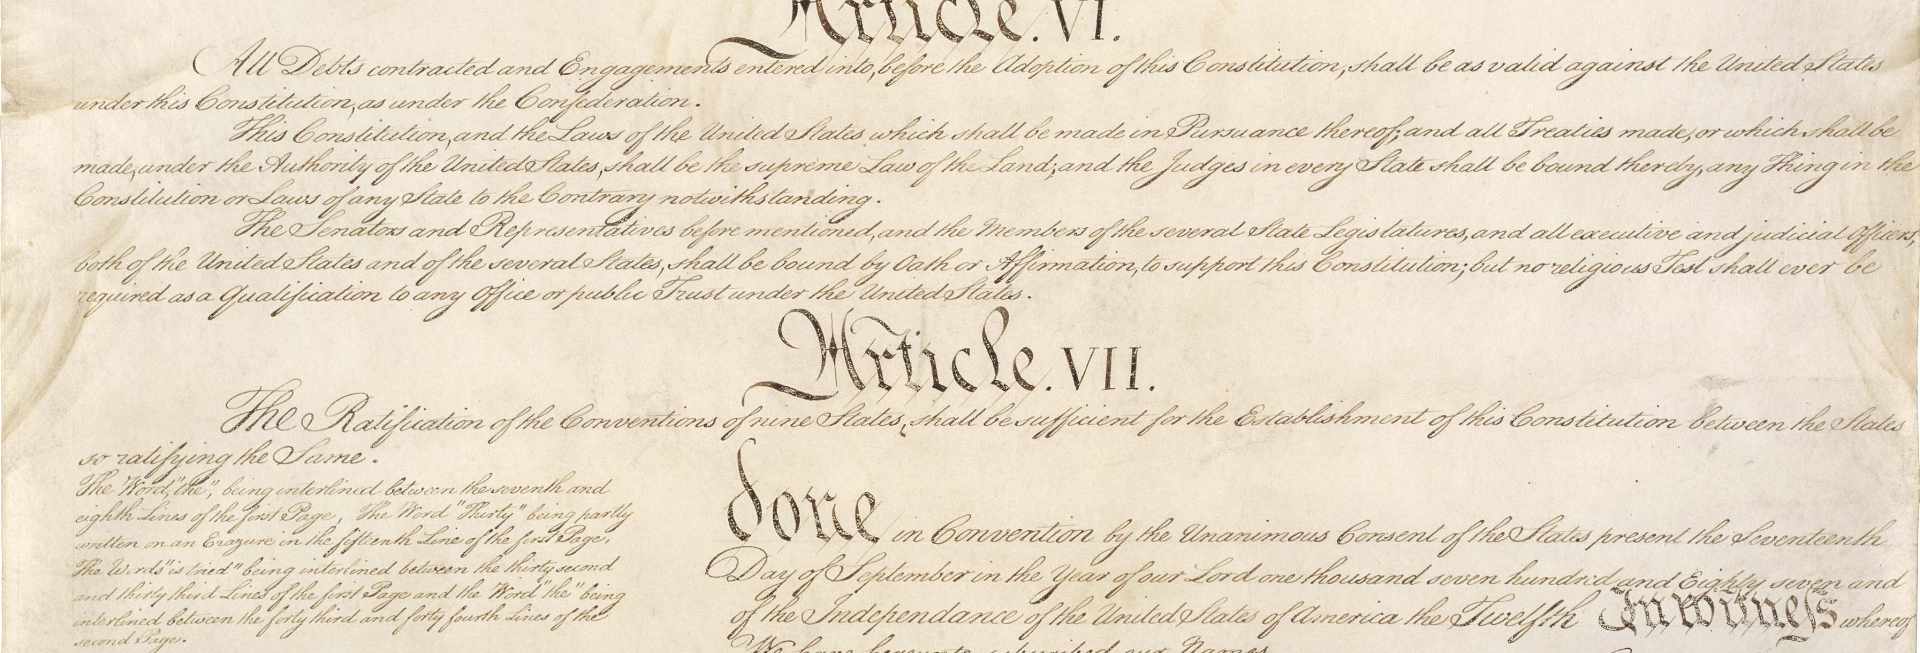 Article. VI.
All Debts contracted and Engagements entered into, before the Adoption of this Constitution, shall be as valid against the United States
under this Constitution, as under the Confederation.
This Constitution, and the Laws of the United States which shall be made in Pursuance thereof; and all Treaties made, or which shall be
made, under the Authority of the United States, shall be the supreme Law of the Land; and the Judges in every State shall be bound thereby, any Thing in the
Constitution or Laws of any State to the Contrary notwithstanding.
The Senators and Representatives before mentioned, and the Members of the several State Legislatures, and all executive and judicial Officers,
both of the United States and of the several States, shall be bound by Oath or Affirmation, to support this Constitution; but no religious Test shall ever be
required as a Qualification to any Office or public Trust under the United States.
Article. VII.
The Ratification of the Conventions of nine States, shall be sufficient for the Establishment of this Constitution between the States
so ratifying the Same.
The Word, "the", being interlined between the seventh and
eighth Lines of the first Page, The Word "Thirty" being partly
written on an Erazure in the fifteenth Line of the first Page,
The Words "is tried" being interlined between the thirty second
and thirty third Lines of the first Page and the Word "the" being
interlined between the forty third and forty fourth Lines of the
second Page.
done in Convention by the Unanimous Consent of the States present the Seventeenth
Day of September in the Year of our Lord one thousand seven hundred and Eighty seven and
of the Independance of the United States of America the Twelfth In witness whereof
We have hereunto subscribed our Names,